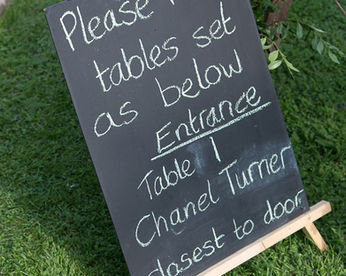 Please
tables set
as below
Entrance
Table 1
Chanel Turner
closest to door